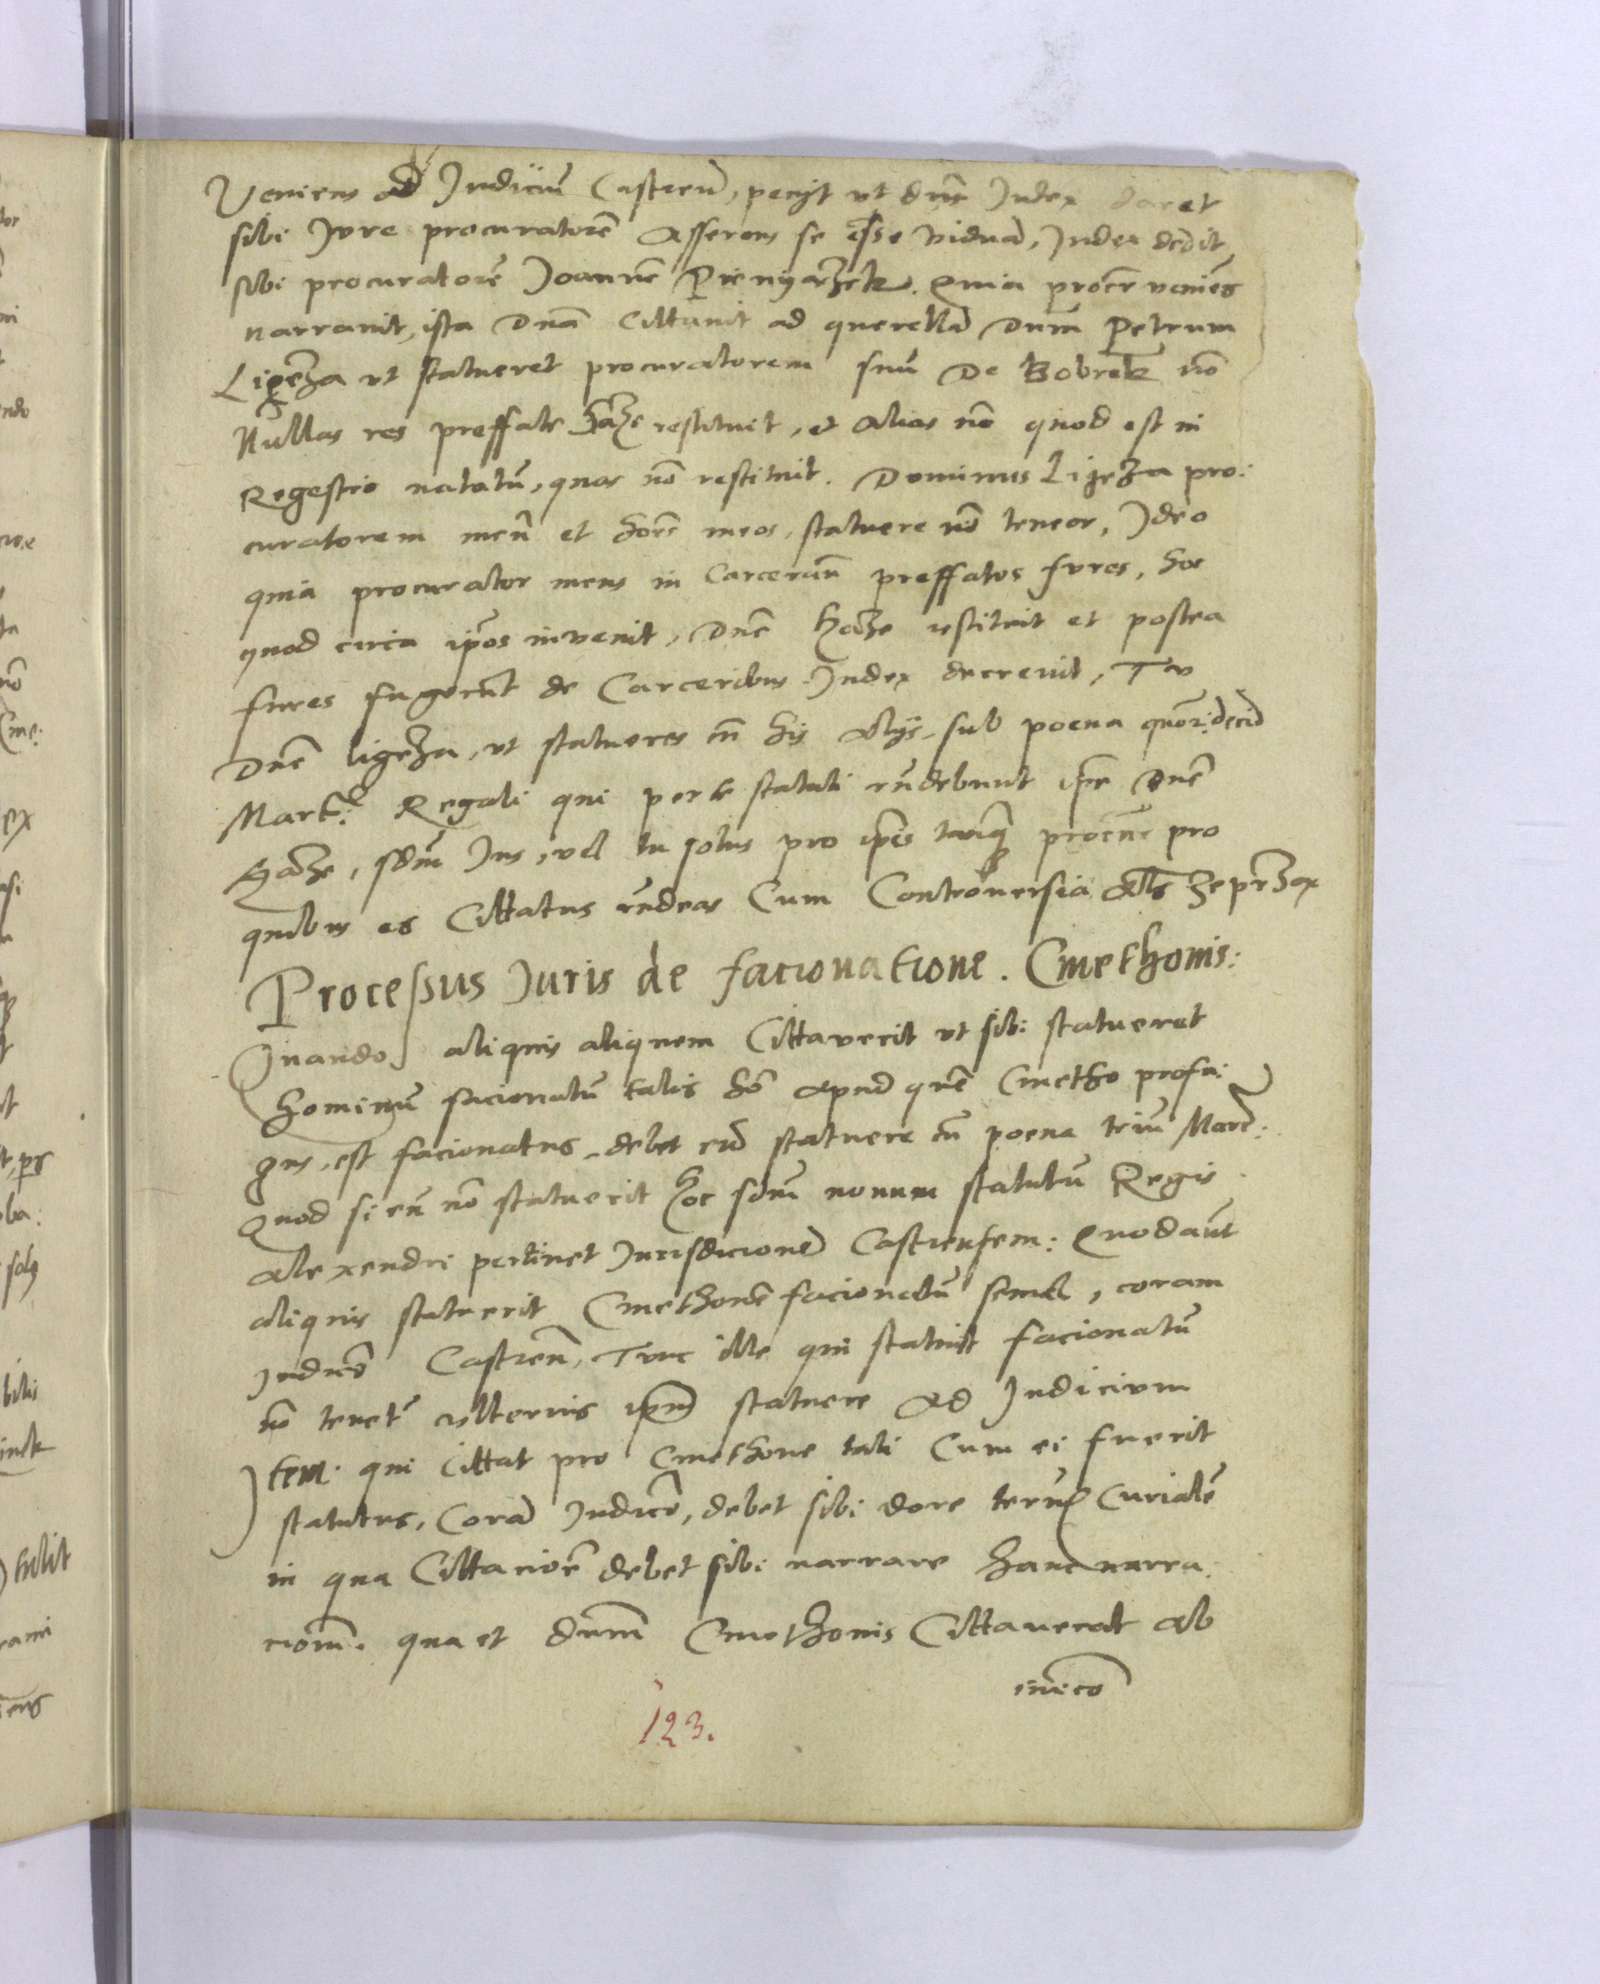 Veniens ad Judiciũ Castreñ, petyt vt dñs Judex daret
sibi Jure procuratorẽ Asserens se esse viduã, Judex dedit
sibi procuratorẽ Joannẽ Pienyąźek. Quia procr̃ veniẽs
narrauit, ista Dña Cittauit ad querellã Dnũm Petrum
Ligęza vt statueret procuratorem suũ De Bobrek nõ
Nullas res preffate restituit, et Alias nõ quod est in
Regestro notatũ, quas nõ restituit. Dominus Ligęza pro:
curatorem meũ et hoẽs meos, statuere nõ teneor, Ideo
quia procurator meus in Carcerauit preffatos fures, hoc
quod circa ip̃os invenit, Dnẽ restituit et postea
fures fugerũt de Carceribus. Judex decrevit, Tu
Dnẽ ligęza, vt statueres cũ his Alijs, sub poena quatuordecĩ
Marc: Regali qui per te statuti rñdebunt ip̃e Dnẽ
, scdm Jus, vel tu solus pro ip̃is tanq̃ pro
quibus es Cittatus rñdeas Cum Controversia Als
Processus Juris de facionatione. Cmethonis:
Quando aliquis aliquem Cittaverit vt sibi statueret
hominẽ facionatũ talis hõ Apud quẽ Cmetho profu:
gus, est facionatus, debet eũ statuere cũ poena triũ Marc:
Quod si eũ nõ statuerit hoc scdm nouum statutũ Regis
Alexendri pertinet Jurisdicionẽ Castrensem: Quod aũt
aliquis statuerit Cmethonẽ facionatũ semel, coram
Judicio Castreñ, Tunc ille qui statuit facionatũ
nõ tenet̃ vlterius ip̃m statuere Ad Judicium
Item. qui Cittat pro Cmethone tali Cum ei fuerit
statutus, Corã Judicẽ, debet sibi dare Curialẽ
in qua Cittacioẽ debet sibi narrare hanc narra:
cionẽ. qua et dnũm Cmethonis Cittauerat Ab

123.